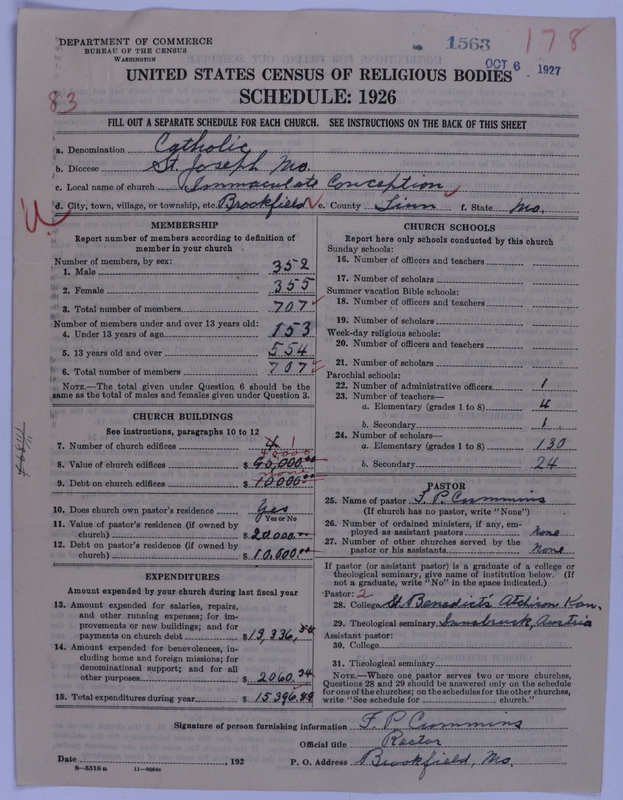 DEPARTMENT OF COMMERCE
BUREAU OF THE CENSUS
WASHINGTON
1563
178
OCT 6 - 1927
UNITED STATES CENSUS OF RELIGIOUS BODIES
SCHEDULE: 1926
83
FILL OUT A SEPARATE SCHEDULE FOR EACH CHURCH. SEE INSTRUCTIONS ON THE BACK OF THIS SHEET
a. Denomination Catholic
b. Diocese St. Joseph Mo.
c. Local name of church Immaculate Conception
d. City, town, village, or township, etc. Brookfield e. County Linn f. State Mo.
MEMBERSHIP
Report number of members according to definition of
member in your church
Number of members, by sex:
1. Male 352
2. Female 355
3. Total number of members 707
Number of members under and over 13 years old:
4. Under 13 years of age 153
5. 13 years old and over 554
6. Total number of members 707
NOTE.—The total given under Question 6 should be
same as the total of males and females given under Question 3.
CHURCH BUILDINGS
See instructions, paragraphs 10 to 12
7. Number of church edifices 4 1
8. Value of church edifices $
9. Debt on church edifices $ 10,000.00
10. Does church own pastor's residence Yes
Yes or No
11. Value of pastor's residence (if owned by
church) $ 20,000.00
12. Debt on pastor's residence (if owned by
church) $ 10,000.00
EXPENDITURES
Amount expended by your church during last fiscal year
13. Amount expended for salaries, repairs,
and other running expenses; for im-
provements or new buildings; and for
payments on church debt $ 13,336.55
14. Amount expended for benevolences, in-
cluding home and foreign missions; for
denominational support; and for all
other purposes $ 2060.34
15. Total expenditures during year $ 15396.89
CHURCH SCHOOLS
Report here only schools conducted by this church
Sunday schools:
16. Number of officers and teachers
17. Number of scholars
Summer vacation Bible schools:
18. Number of officers and teachers
19. Number of scholars
Week-day religious schools:
20. Number of officers and teachers
21. Number of scholars
Parochial schools:
22. Number of administrative officers 1
23. Number of teachers—
a. Elementary (grades 1 to 8) 4
b. Secondary 1
24. Number of scholars—
a. Elementary (grades 1 to 8) 130
b. Secondary 24
PASTOR
25. Name of pastor F. P. Cummins
(If church has no pastor, write "None")
26. Number of ordained ministers, if any, em-
ployed as assistant pastors None
27. Number of other churches served by the
pastor or his assistants None
If pastor (or assistant pastor) is a graduate of a college or
theological seminary, give name of institution below. (If
not a graduate, write "No" in the space indicated.)
Pastor: 2
28. College St. Benedict's Atchison Kan.
29. Theological seminary Innsbruck, Austria
Assistant pastor:
30. College
31. Theological seminary
NOTE.—Where one pastor serves two or more churches,
Questions 28 and 29 should be answered only on the schedule
for one of the churches; on the schedules for the other churches,
write "See schedule for church."
Signature of person furnishing information F. P. Cummins
Official title Rector
Date , 192 P. O. Address Brookfield, Mo.
8-5518 a